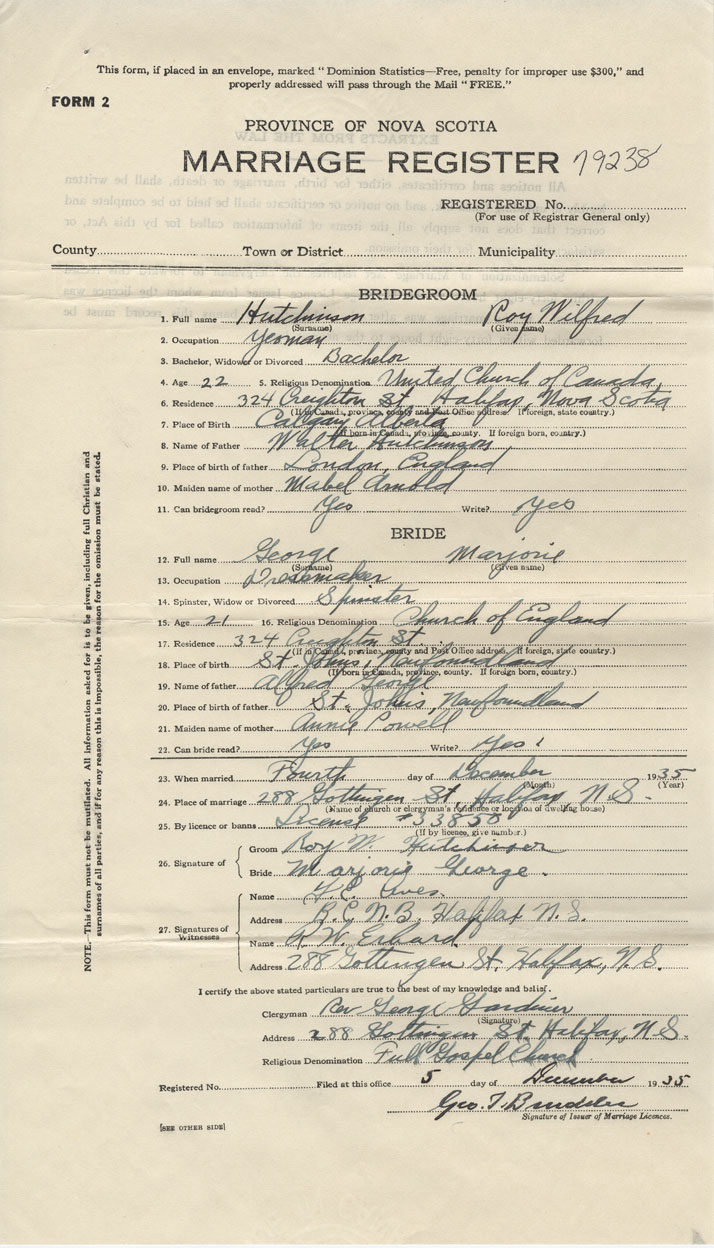 This form, if placed in an envelope, marked "Dominion Statistics—Free, penalty for improper use $300," and
properly addressed will pass through the Mail "FREE."
FORM 2
PROVINCE OF NOVA SCOTIA
MARRIAGE REGISTER 79238
REGISTERED No.
(For use of Registrar General only)
County Town or District Municipality
BRIDEGROOM
1. Full name Hutchinson Roy Wilfred
(Surname) (Given name)
2. Occupation Yeoman
3. Bachelor, Widower or Divorced Bachelor
4. Age 22 5. Religious Denomination United Church of Canada,
6. Residence 324 Creighton St, Halifax, Nova Scotia
(If in Canada, province, county and Post Office address. If foreign, state country.)
7. Place of Birth Calgary Alberta
(If born in Canada, province, county. If foreign born, country.)
8. Name of Father Walter Hutchinson
9. Place of birth of father London, England
10. Maiden name of mother Mabel Arnold
11. Can bridegroom read? Yes Write? Yes
BRIDE
12. Full name George Marjorie
(Surname) (Given name)
13. Occupation Dressmaker
14. Spinster, Widow or Divorced Spinster
15. Age 21 16. Religious Denomination Church of England
17. Residence 324 Creighton St.
(If in Canada, province, county and Post Office address. If foreign, state country.)
18. Place of birth St. Johns, Newfoundland
(If born in Canada, province, county. If foreign born, country.)
19. Name of father Alfred George
20. Place of birth of father St. Johns, Newfoundland
21. Maiden name of mother Annie Powell
22. Can bride read? Yes Write? Yes
23. When married Fourth day of December 1935
(Month) (Year)
24. Place of marriage 288 Gottingen St, Halifax, N.S.
(Name of church or clergyman's residence or location of dwelling house)
25. By licence or banns License # 33850
(If by licence, give number.)
26. Signature of
Groom Roy W. Hutchinson
Bride Marjorie George.
27. Signatures of Witnesses
Name
Address R.C.N.B. Halifax N.S.
Name R. W. Erhard.
Address 288 Gottingen St. Halifax, N.S.
I certify the above stated particulars are true to the best of my knowledge and belief.
Clergyman Rev George Gardiner
(Signature)
Address 288 Gottingen St. Halifax, N.S.
Religious Denomination Full Gospel Church
Registered No. Filed at this office 5 day of December 1935
Geo. T.
Signature of Issuer of Marriage Licences.
[SEE OTHER SIDE]
NOTE.—This form must not be mutilated. All information asked for is to be given, including full Christian and
surnames of all parties, and if for any reason this is impossible, the reason for the omission must be stated.